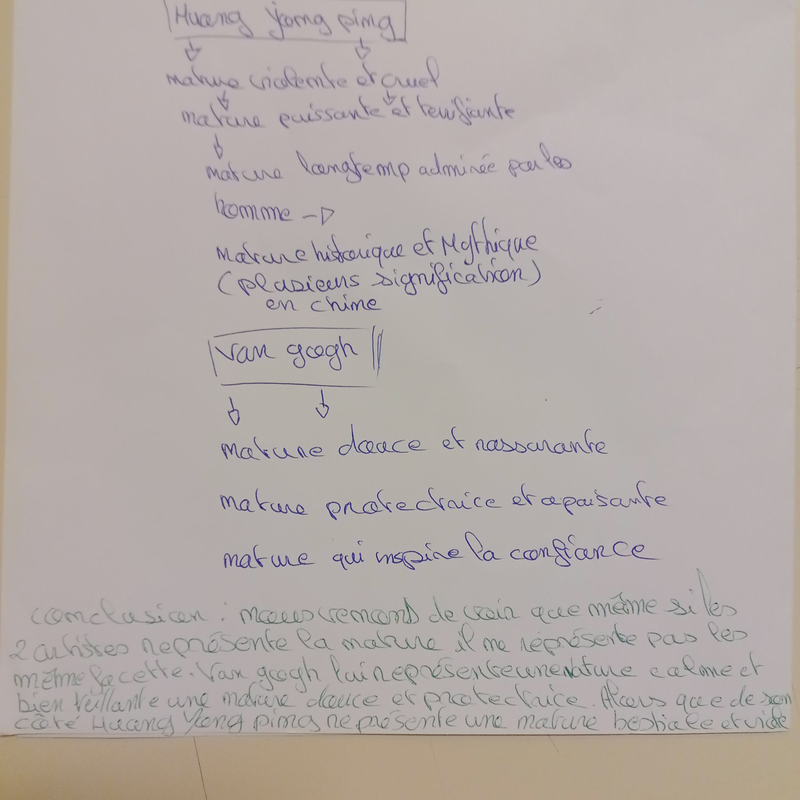 Huang yong ping
nature violente et cruel
nature puissante et terrifiante
nature longtemp admirée par les
homme ->
Nature historique et Mythique
(plusieurs signification)
en chine
Van gogh
nature douce et rassurante
nature protectraice et apaisante
nature qui inspire la confiance
conclusion : nous venons de voir que même si les
2 artistes représente la nature il ne représente pas les
même facette. Van gogh lui représente une nature calme et
bien veillante une nature douce et protectraice. Alors que de son
côté Huang Yong ping représente une nature bestiale et